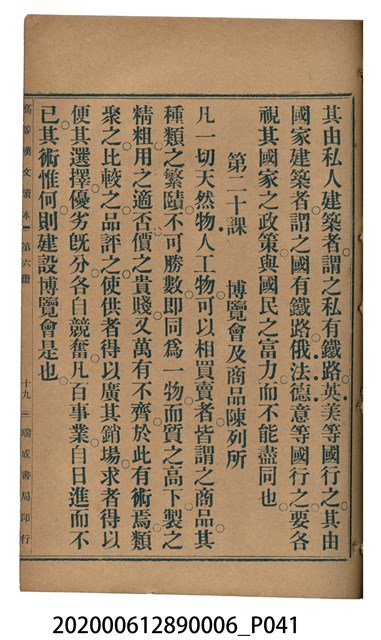 其由私人建築者謂之私有鐵路英美等國行之其由
國家建築者謂之國有鐵路俄法德意等國行之要各
視其國家之政策與國民之富力而不能盡同也
第二十課　博覽會及商品陳列所
凡一切天然物人工物可以相買賣者皆謂之商品其
種類之繁賾不可勝數即同爲一物而質之高下製之
精粗用之適否價之貴賤又萬有不齊於此有術焉類
聚之比較之品評之使供者得以廣其銷場求者得以
便其選擇優劣旣分各自競奮凡百事業自日進而不
已其術惟何則建設博覽會是也
高等漢文讀本　第六冊　十九　瑞成書局印行
202000612890006_P041